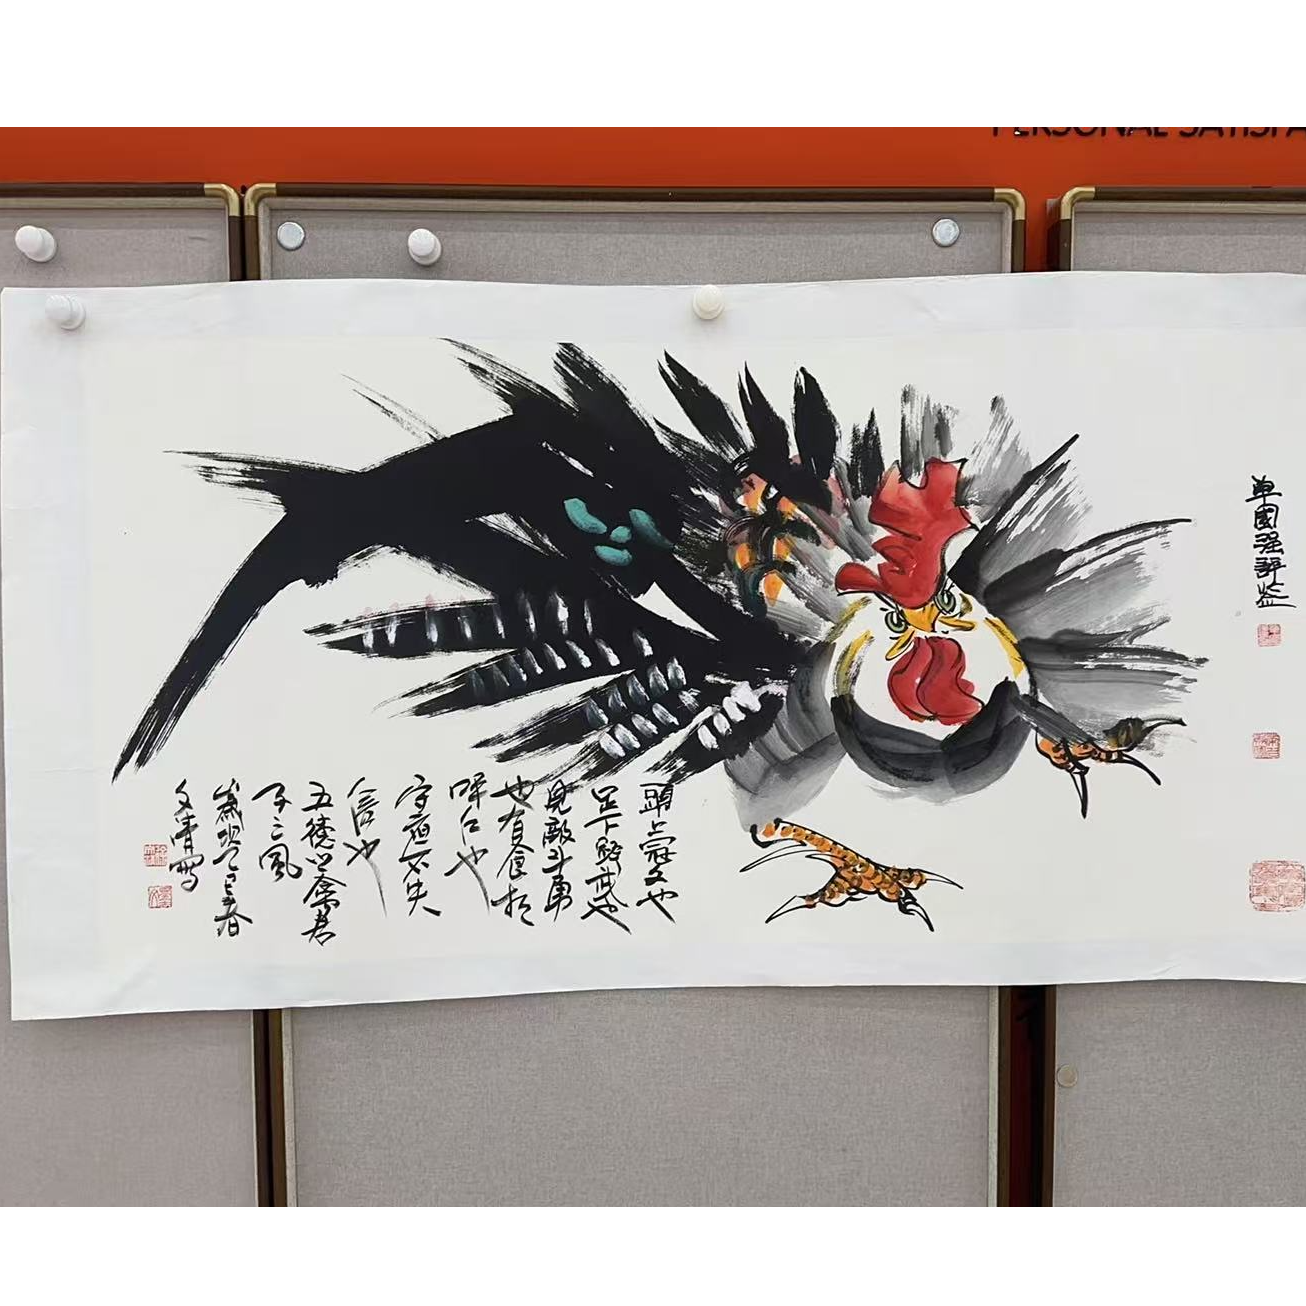 PERSONAL SATISFA
單國强評鉴
頭上冠文也
足下距武也
見敵斗勇
也有食相
呼仁也
守夜不失
信也
五德之禽君
子之風
歲次乙巳春
文清寫